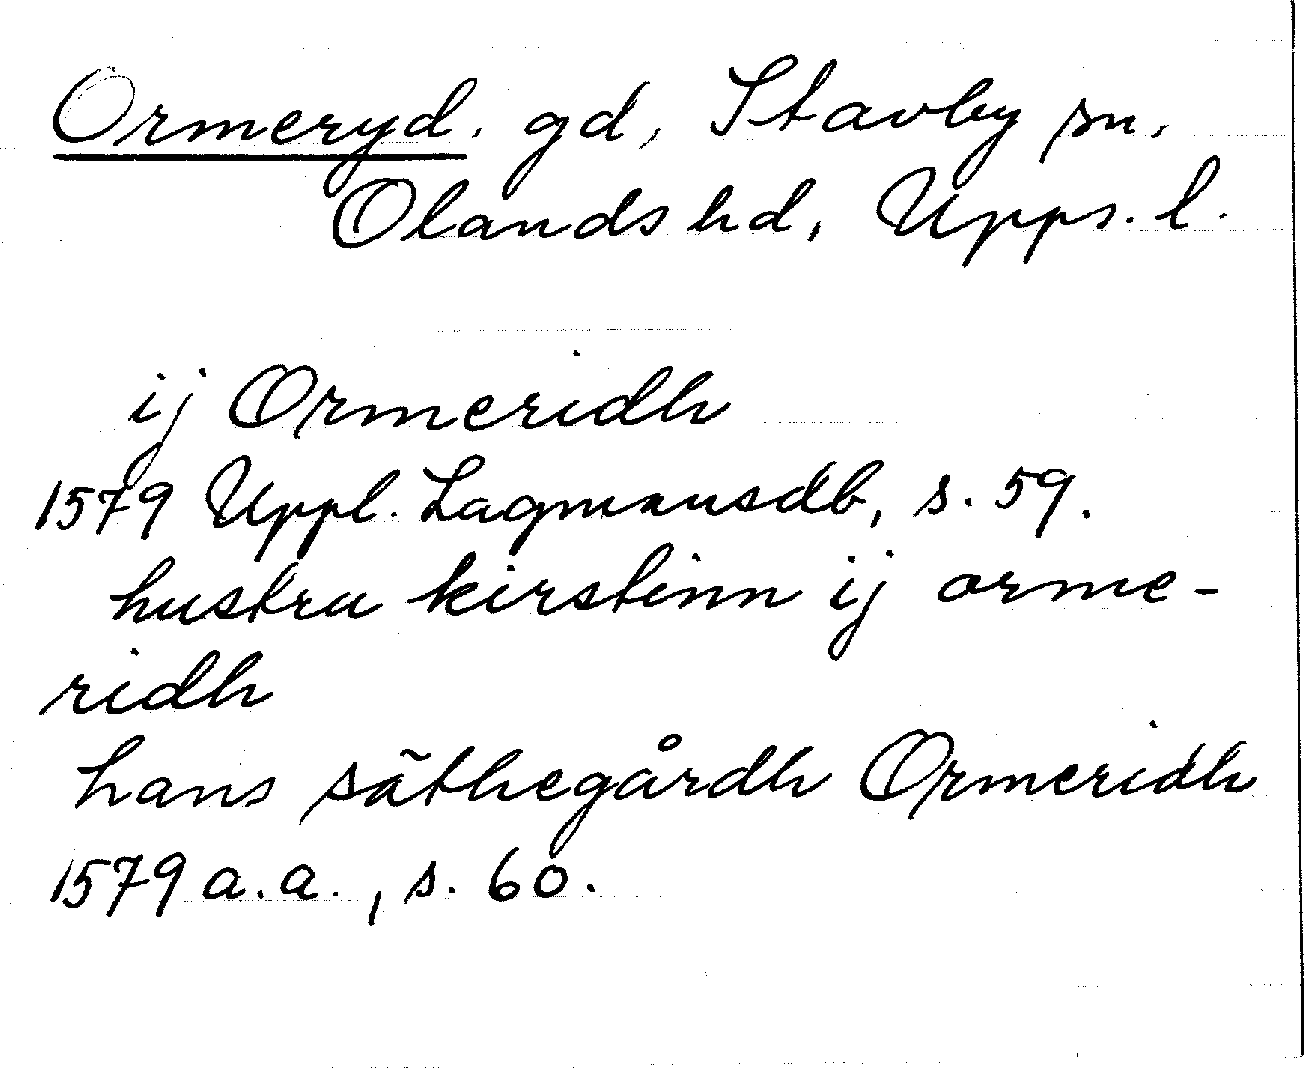 Ormeryd. gd, Stavby sn,
Olands hd, Upps. l.
ij Ormeridh
1579 Uppl. Lagmansdb, s. 59.
hustru kirstinn ij orme-
ridh
hans säthegårdh Ormeridh
1579 a.a., s. 60.